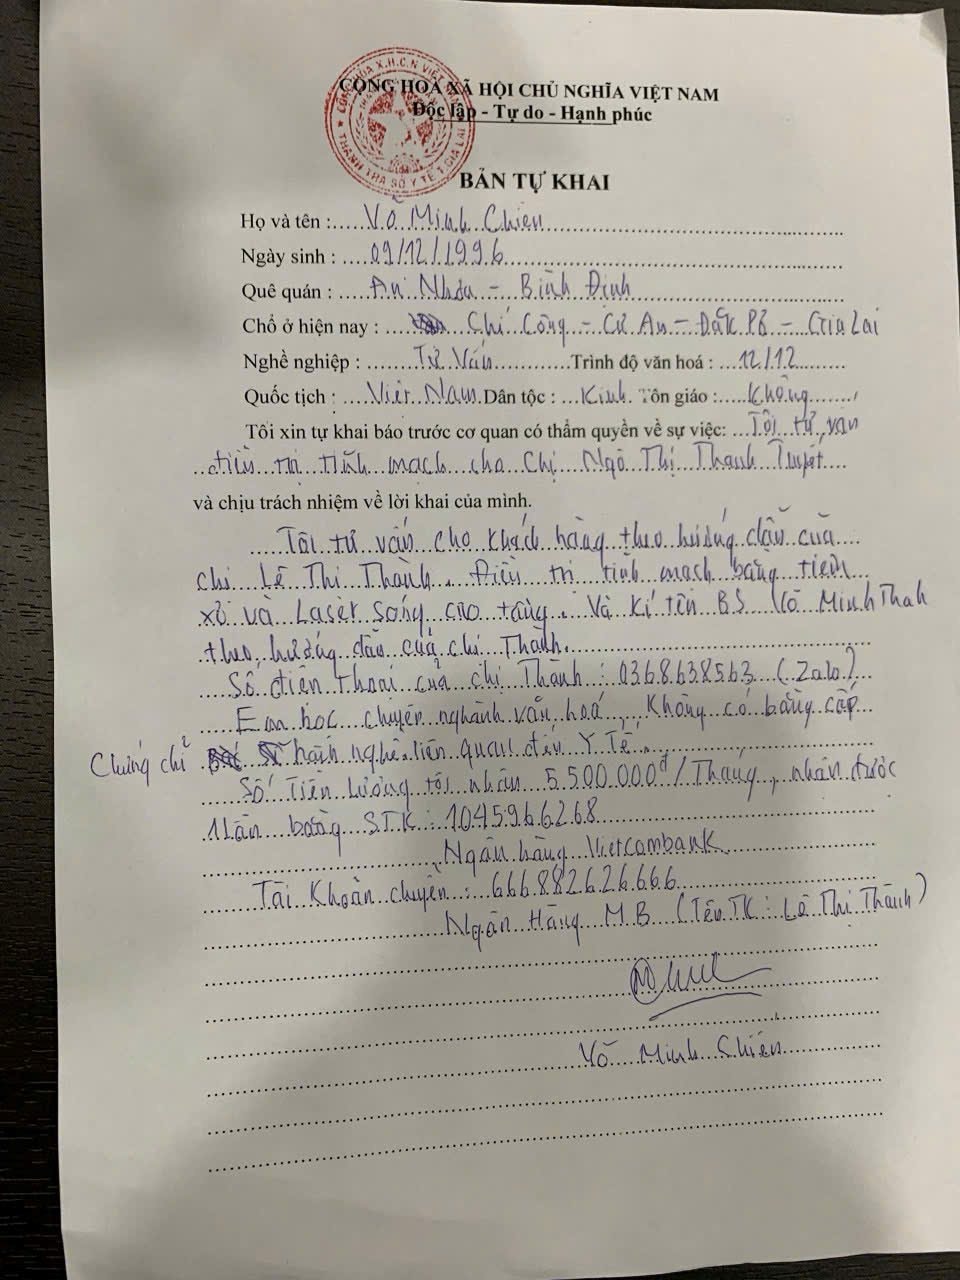 CỘNG HOÀ XÃ HỘI CHỦ NGHĨA VIỆT NAM
Độc lập - Tự do - Hạnh phúc
CỘNG HÒA X.H.C.N VIỆT NAM
THANH TRA SỞ Y TẾ T.GIA LAI
BẢN TỰ KHAI
Họ và tên : Võ Minh Chiến
Ngày sinh : 09/12/1996
Quê quán : An Nhơn - Bình Định
Chổ ở hiện nay : Chí Công - Cư An - Đăk Pơ - Gia Lai
Nghề nghiệp : Tư Vấn Trình độ văn hoá : 12/12
Quốc tịch : Việt Nam Dân tộc : Kinh Tôn giáo : Không
Tôi xin tự khai báo trước cơ quan có thẩm quyền về sự việc: Tôi tư vấn
điều trị tĩnh mạch cho Chị Ngô Thị Thanh Tuyết
và chịu trách nhiệm về lời khai của mình.
Tôi tư vấn cho khách hàng theo hướng dẫn của
chị Lê Thị Thành. Điều trị tĩnh mạch bằng tiêm
xơ và Laser sóng cao tầng. Và kí tên BS Võ Minh Thah
theo hướng dẫn của chị Thành.
Số điện thoại của chị Thành : 0368638563 (Zalo)
Em học chuyên nghành văn hoá, Không có bằng cấp
Chứng chỉ hành nghề liên quan đến Y Tế.
Số Tiền Lương tôi nhân 5.500.000đ/Tháng, nhân được
1 lần bằng STK : 1045966268
Ngân hàng Vietcombank
Tài Khoản chuyển : 666882626666
Ngân Hàng MB (Tên TK : Lê Thị Thành)
Võ Minh Chiến